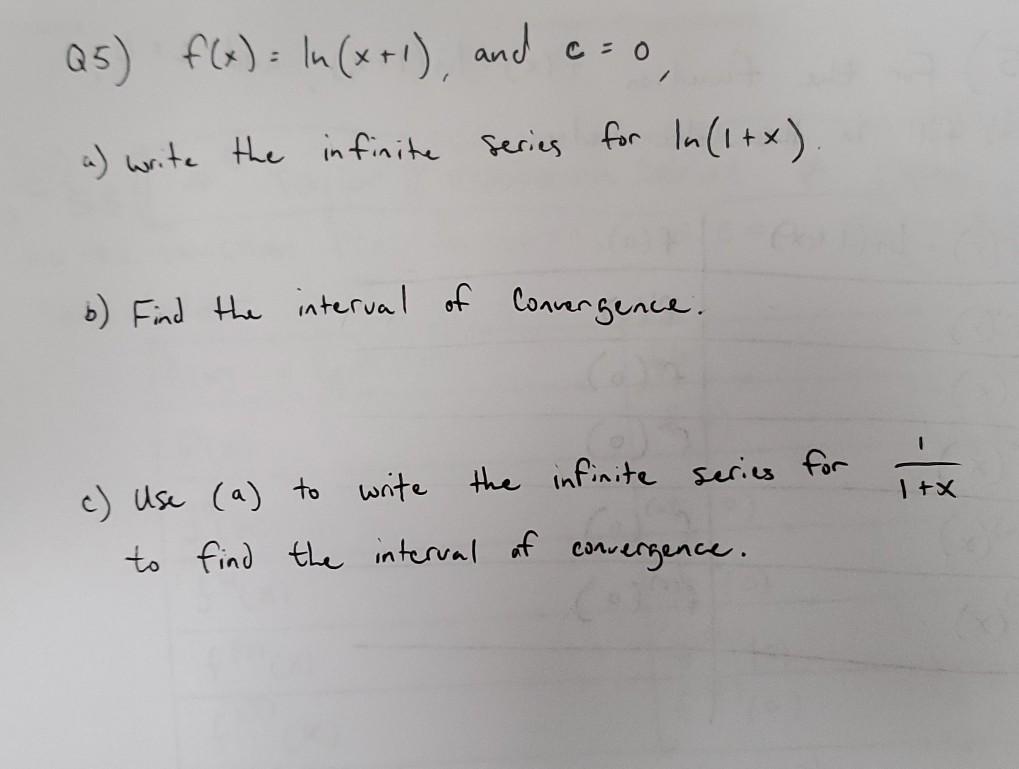 Q5) f(x) = ln(x+1), and c = 0,
a) write the infinite series for ln(1+x).
b) Find the interval of Convergence.
c) Use (a) to write the infinite series for 1/(1+x)
to find the interval of convergence.